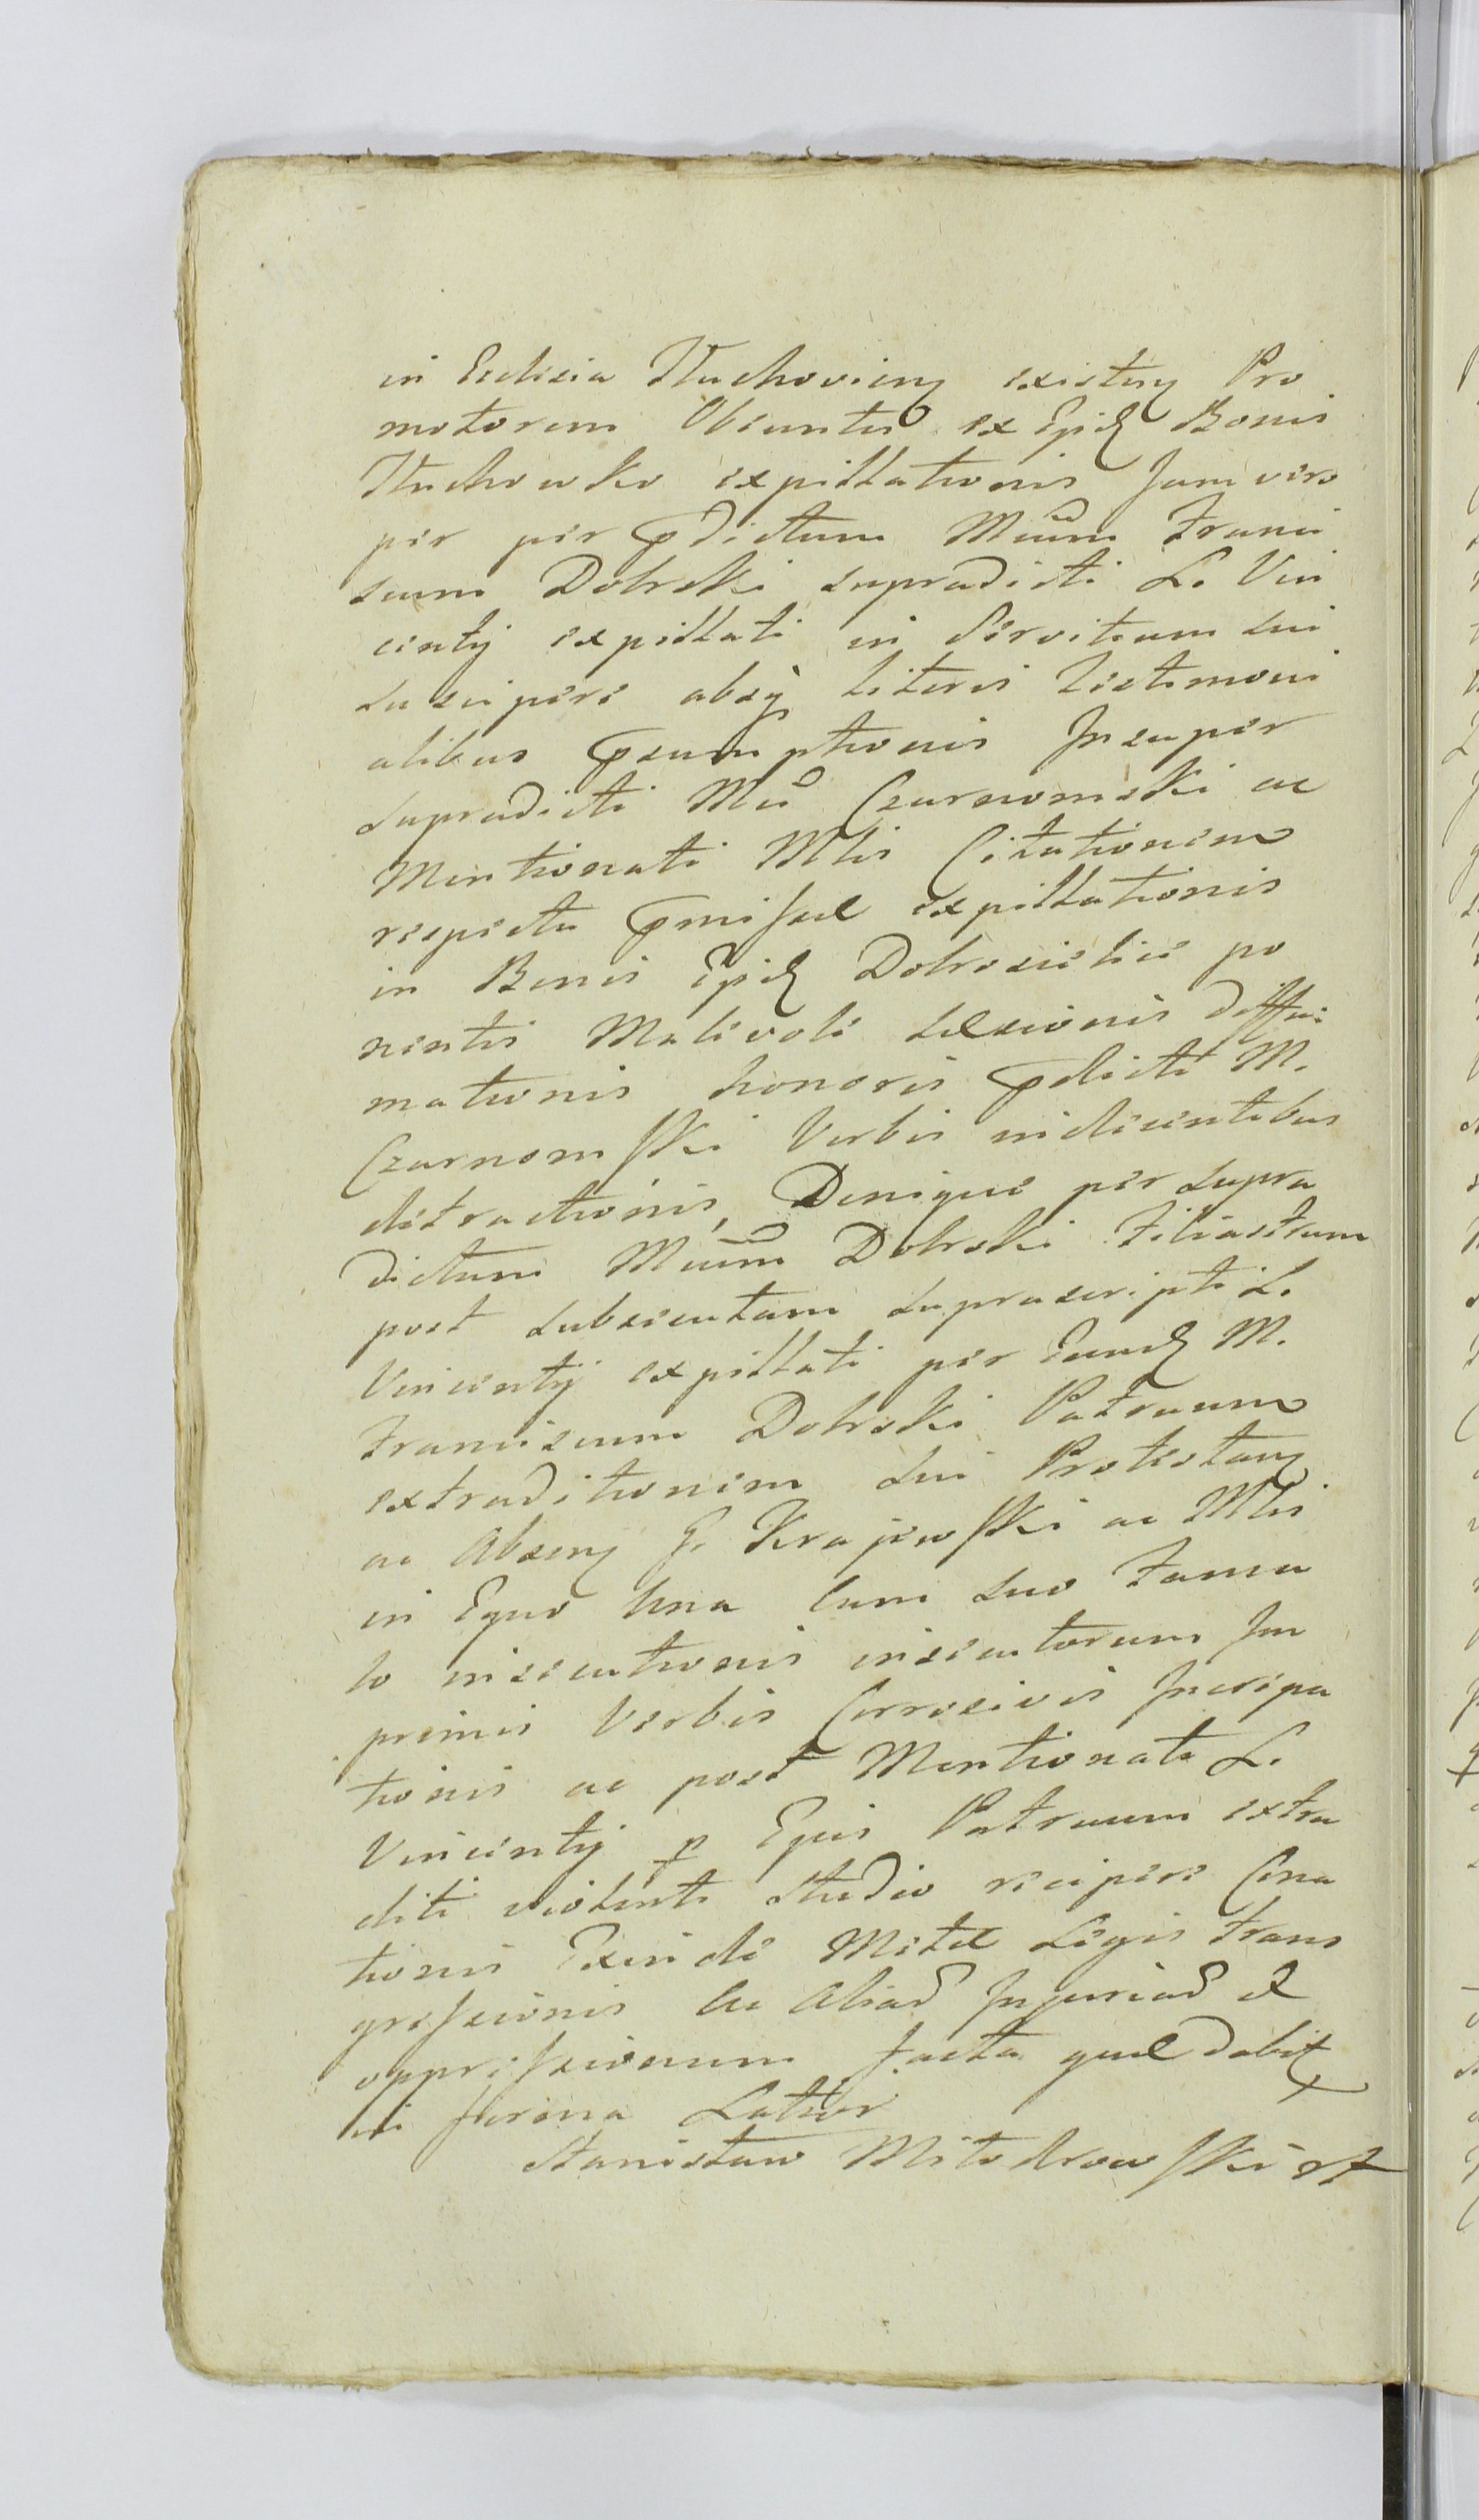 in Ecclesia Tluchoviens existens Pro
motorem Obeuntis ex Ejusd Bonis
Tluchowko expillationis Jam vero
per per pdictum Mcum Franci
scum Dobrski supradicti L. Vin
centij expillati in Servitium sui
suscipere absq literis testimoni
alibus psumptionis Insuper
supradicti Mci Czarnomski ac
Mentionati Mtis Citationem
respectu pmissae expillationis
in Bonis Ejusd Dobrosielice po
nentis Malevole laesionis diffa:
mationis honoris pdicti M.
Czarnomski Verbis indicentibus
detractionis, Denique per supra
dictum Mcum Dobrski Filiastrum
post subsecutam suprascripti L.
Vincentij expillati per Eund M.
Franciscum Dobrski Patruum
extraditionem sui Protestans
ac Absens G. Krajewski ac Mtis
in Equo Una cum suo Famu
lo insecutionis insecutorum Im
primis Verbis Corrosivis Increpa
tionis ac post Mentionati L.
Vincentij p Ejus Patruum extra
diti violenti studio recipere Cona
tionis Exinde Mctae Legis trans
gressionis Ac Aliad Injuriad et
oppressionum facta quae dabit
in forma Latior
Stanisław Mitodrowski mp